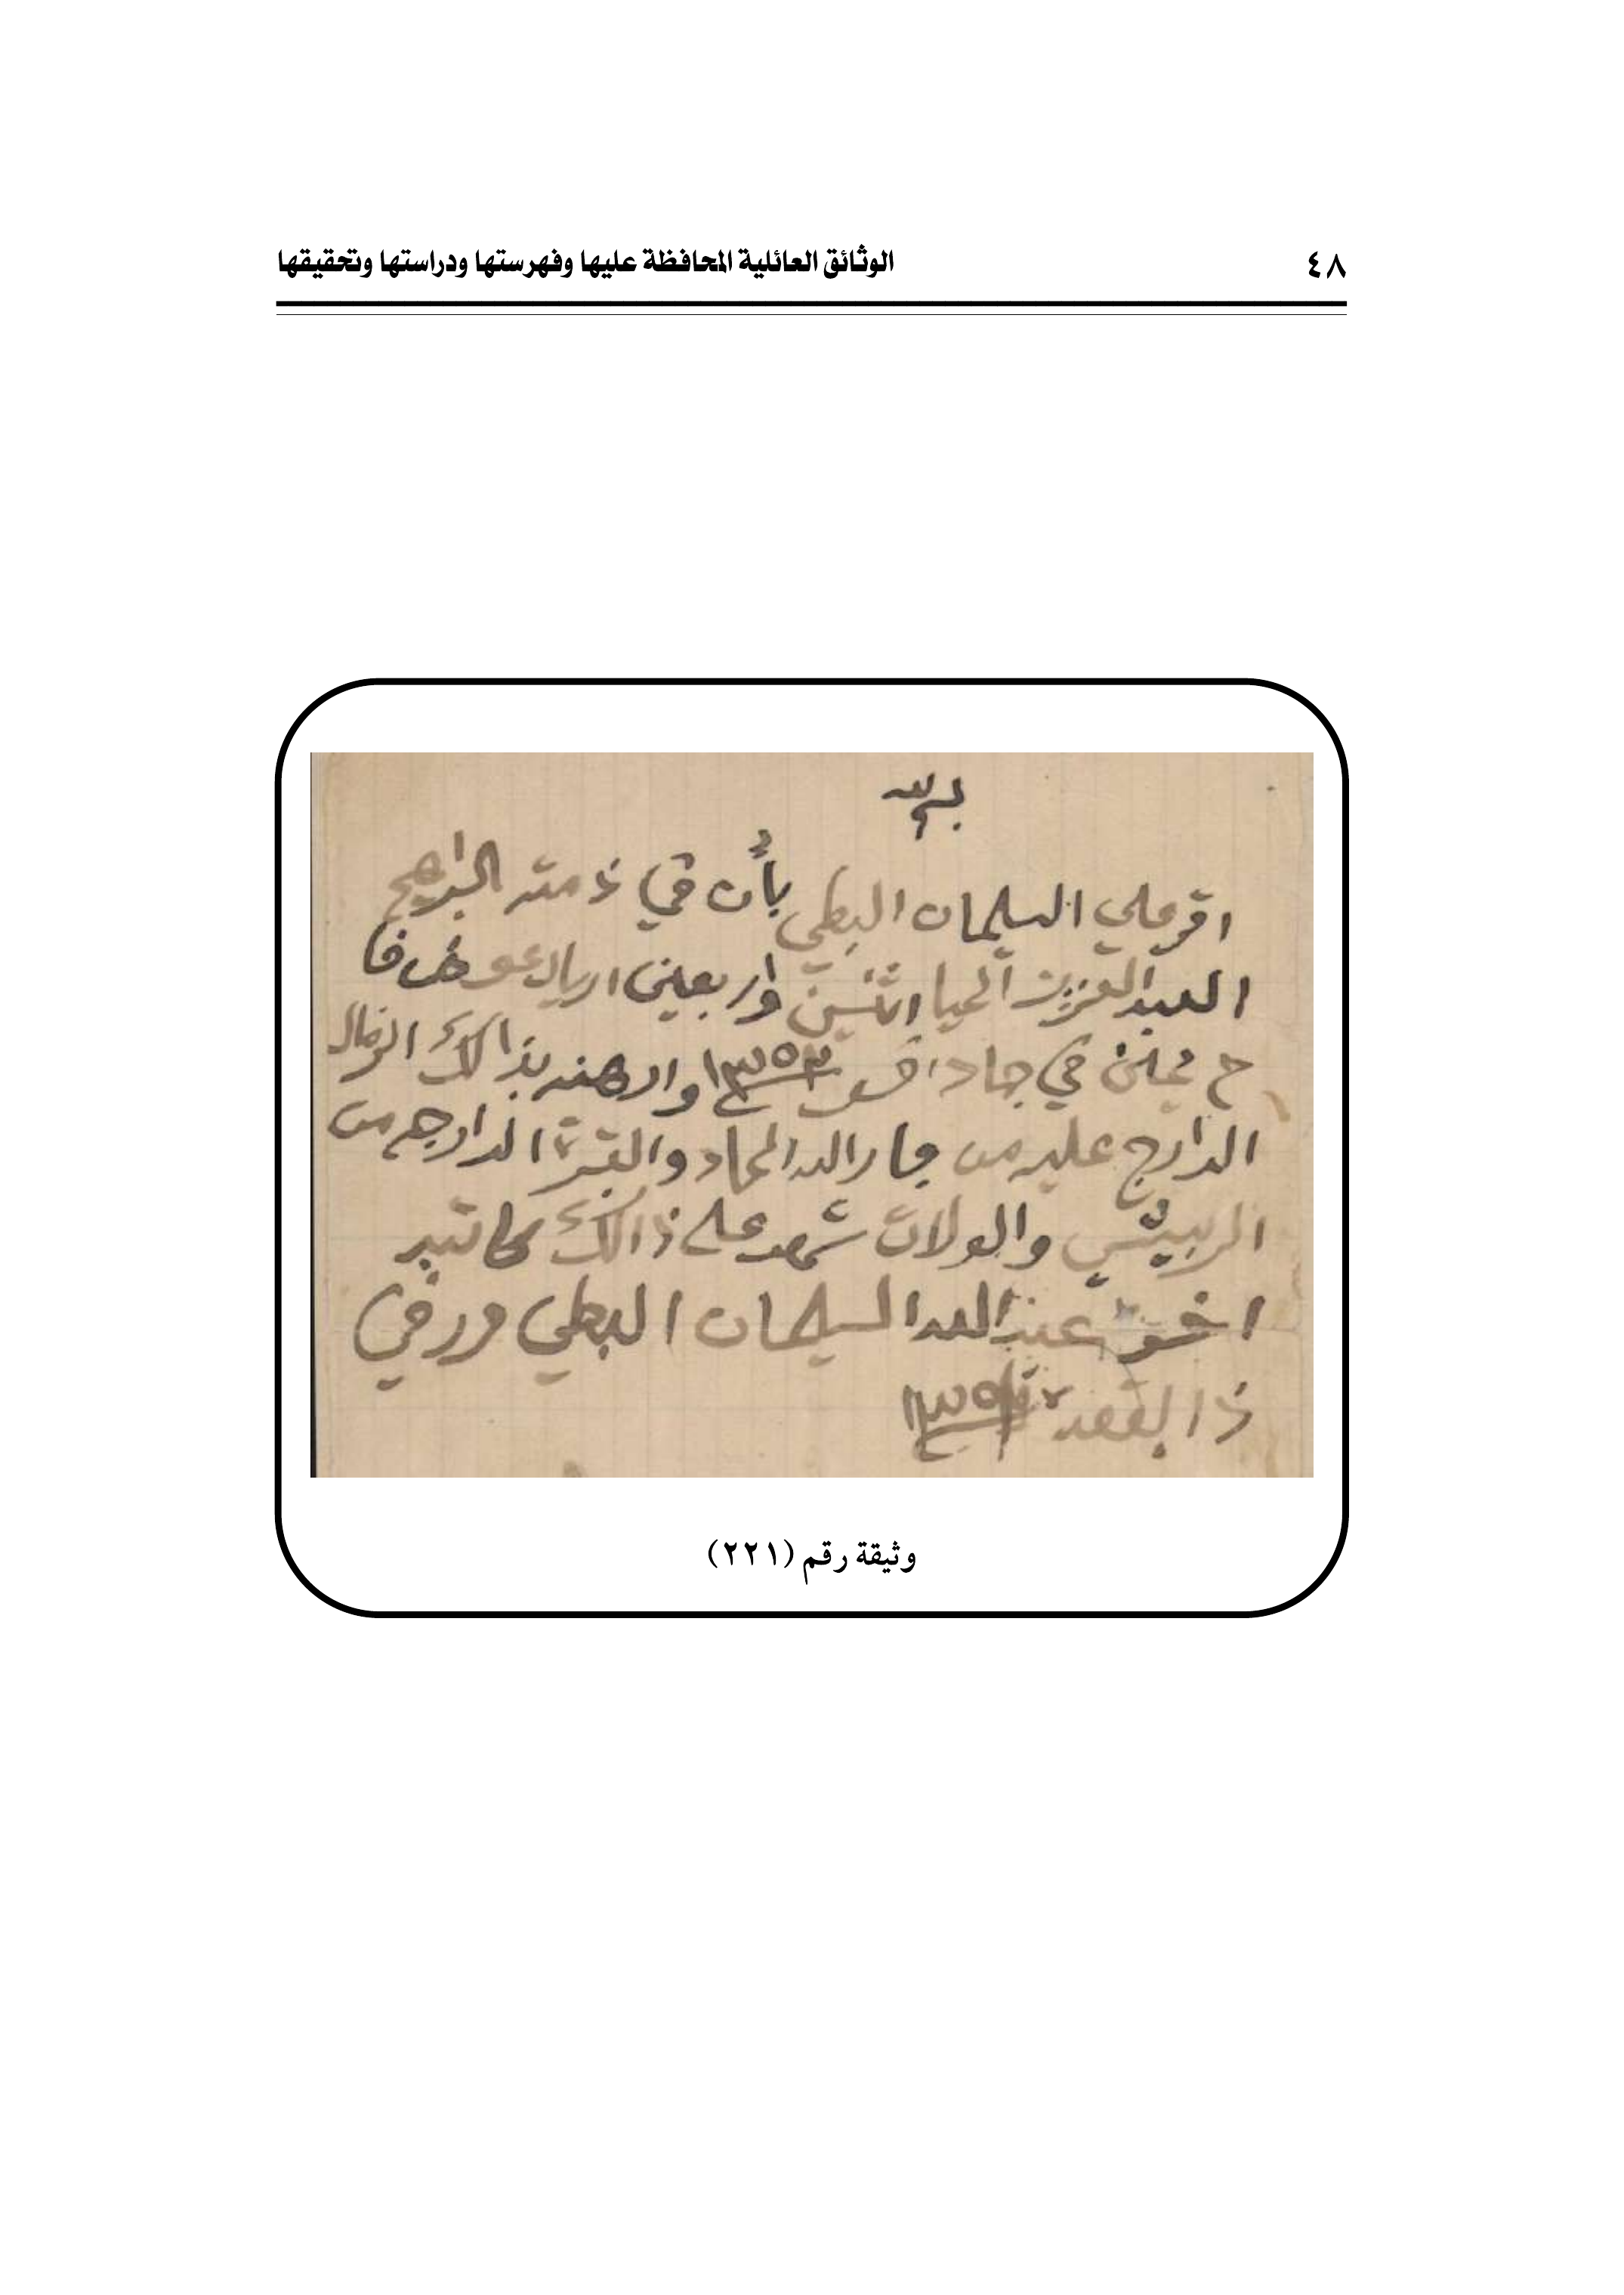 ٤٨
الوثائق العائلية المحافظة عليها وفهرستها ودراستها وتحقيقها
بسم الله
اقر علي السليمان البطي بأن في ذمته البراهيم
العبد العزيز المحيا اثنين واربعين اريال عوض قا
ح يحلن في جماد اخر ١٣٥٣ وارهنه بذالك
الدارج عليه من جار الله الحماد والبقرة الدارجه من
الربيش شهد على ذالك كاتبه
اخوه عبد الله السليمان البطي حرر في
ذا القعده
وثيقة رقم (٢٢١)